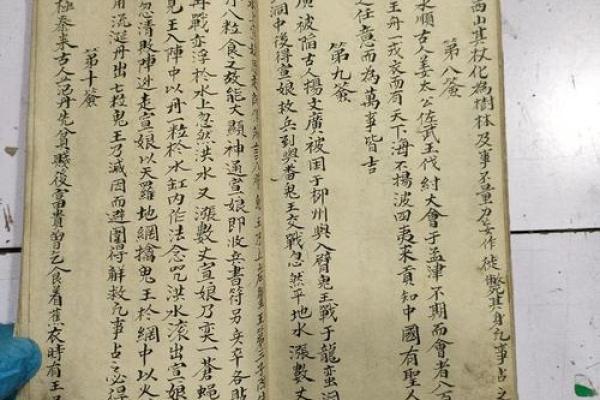 西山其杖化為樹林及事不量力妄作徒斃其身凡事占之
第八簽
水順古人姜太公佐武王伐紂大會于孟津不期而會者八百
王舟一戎衣而有天下海不揚波四夷來貢知中國有聖人
之任意而為萬事皆吉
第九簽
廣被陷古人楊文廣被困于柳州與八臂鬼王戰于龍蛮洞
洞中後得宣娘救兵到與番鬼王交戰忽然平地水漲數丈
八粒食之故能大顯神通宣娘即收兵書符另兵卒各貼
再戰亦浮於水上忽然洪水又漲數丈宣娘乃变一蒼蠅
鬼王入陣中以丹一粒於水缸内作法念咒洪水滚出宣娘
忽清敗陣逃走宣娘以天羅地網擒鬼王於網中以火
用流丹出七粒鬼王乃滅因而避圍得解救凡事占之必得
第十簽
極泰來古人范丹先貧賤後富貴當乞食看衣時有王